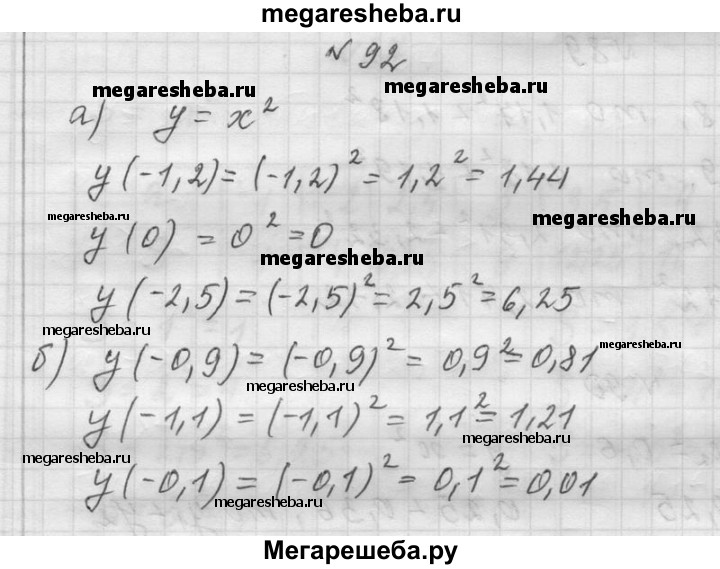 megaresheba.ru
№ 92
megaresheba.ru megaresheba.ru
а) y = x²
y(-1,2) = (-1,2)² = 1,2² = 1,44
megaresheba.ru megaresheba.ru
y(0) = 0² = 0
megaresheba.ru
y(-2,5) = (-2,5)² = 2,5² = 6,25
megaresheba.ru
б) y(-0,9) = (-0,9)² = 0,9² = 0,81
megaresheba.ru
megaresheba.ru
y(-1,1) = (-1,1)² = 1,1² = 1,21
megaresheba.ru
megaresheba.ru
y(-0,1) = (-0,1)² = 0,1² = 0,01
megaresheba.ru
Мегарешеба.ру